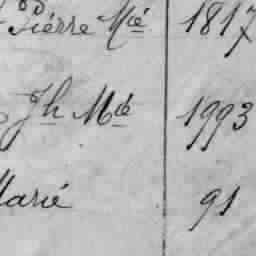 Piérre Mié 1817
Jh Mié 1993
Marié 91